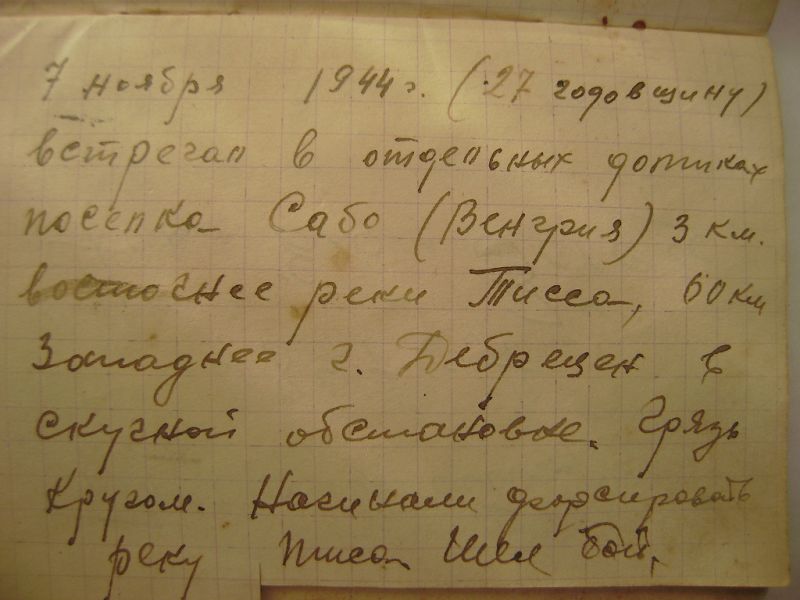 7 ноября 1944 г. (27 годовщину)
встречал в отдельных домиках
поселка Сабо (Венгрия) 3 км.
восточнее реки Тисса, 60 км
Западнее г. Дебрецен в
скучной обстановке. Грязь
Кругом. Начинали форсировать
реку Тиса. Шел бой.